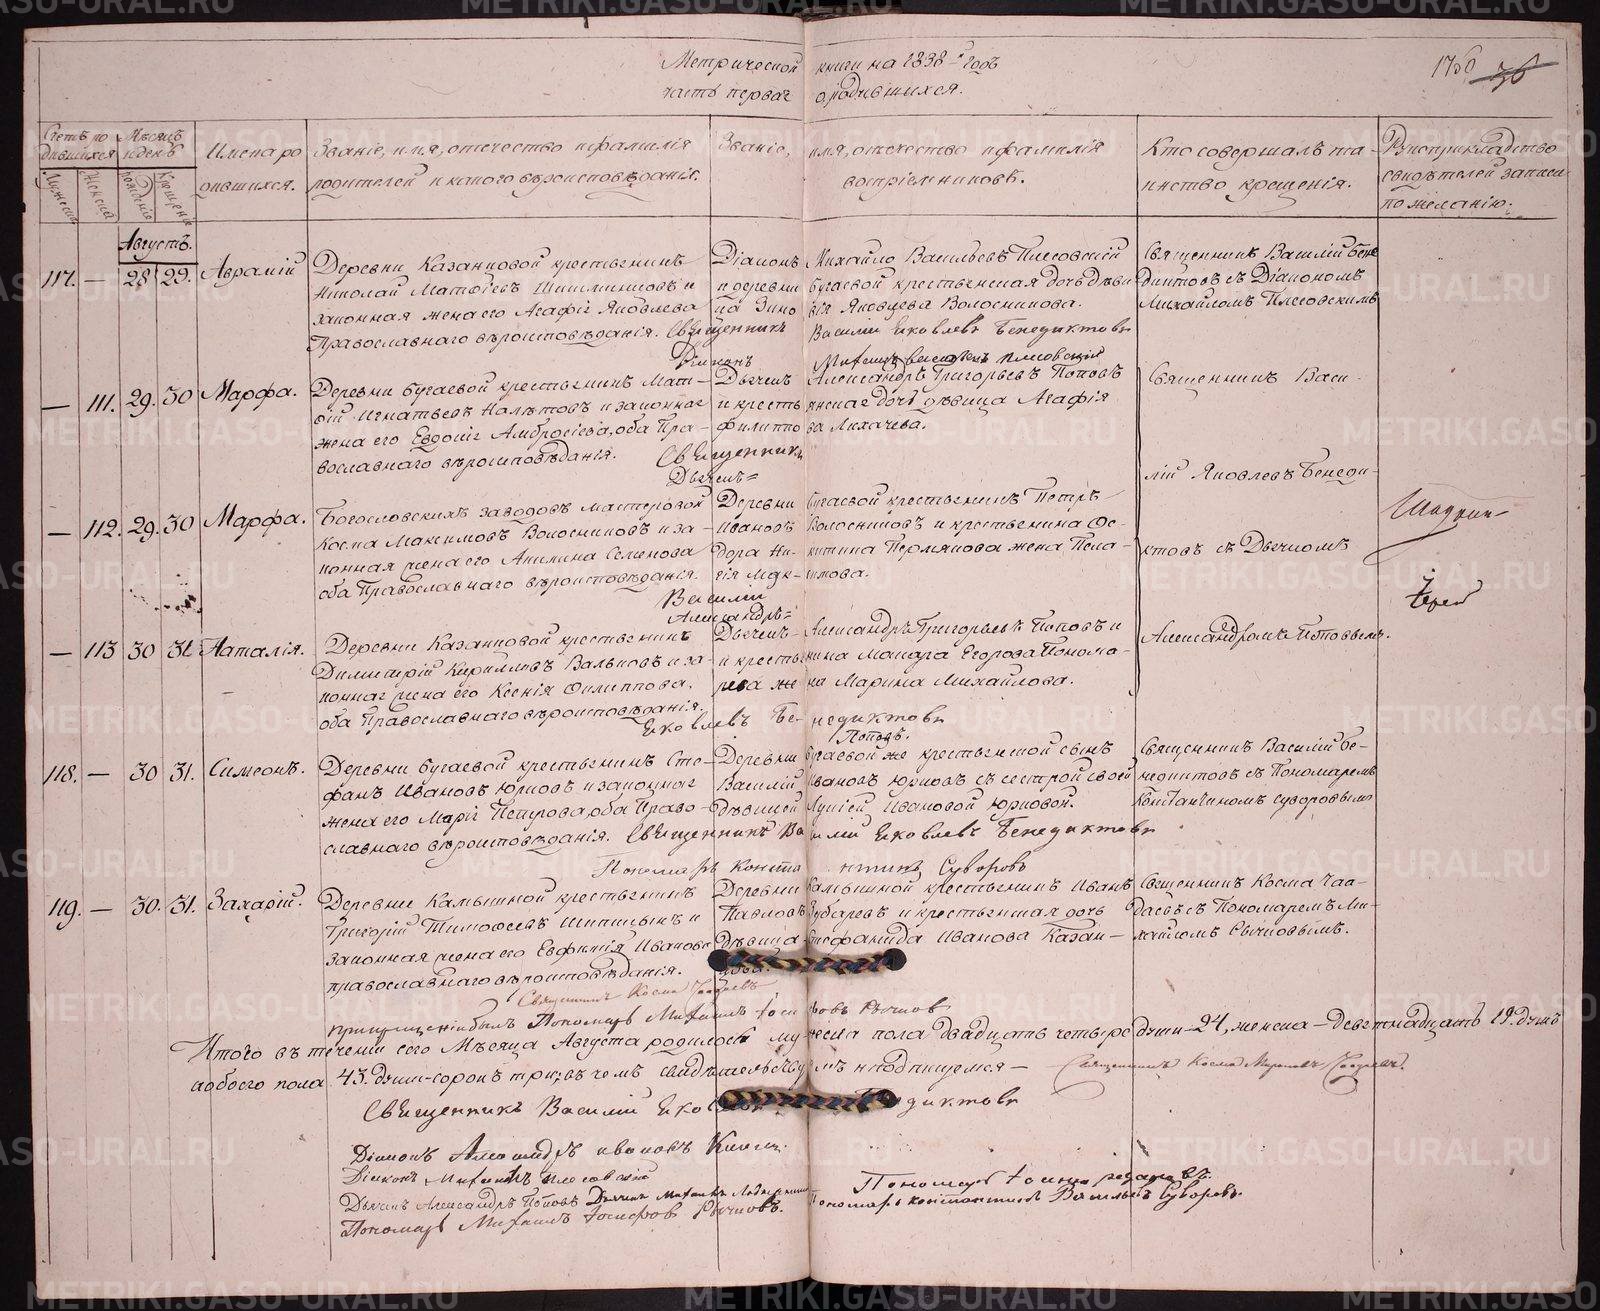 Метрической книги на 1838-й годъ
часть первая о родившихся.
Счетъ родившихся
Мѣсяцъ и день
Имена родившихся.
Званіе, имя, отечество и фамилія родителей и какого вѣроисповѣданія.
Званіе, имя, отечество и фамилія воспріемниковъ.
Кто совершалъ таинство крещенія.
Рукоприкладство свидѣтелей записи по желанію.
Мужеска
Женска
рожденіе
Крещеніе
Августъ.
117. — 28 29. Аврамій
Деревни Казанцовой крестьянинъ
Николай Матфіевъ и
законная жена его Агафія Яковлева
Православнаго вѣроисповѣданія.
Діаконъ Михайло Васильевъ Плесовскій
и деревни Бугаевой крестьянская дочь дѣви
ца Зиновія Яковлева Волосникова.
Священникъ Василій Бене
диктовъ съ Діакономъ
Михайломъ Плесовскимъ
Священникъ Василій Яковлевъ Бенедиктовъ
Діаконъ Михаилъ Васильевъ Плесовскій
— 111. 29. 30 Марфа.
Деревни Бугаевой крестьянинъ Мат-
ѳій Игнатьевъ Налѣтовъ и законная
жена его Евдокія Амбросіева, оба Пра-
вославнаго вѣроисповѣданія.
Дьячекъ Александръ Григорьевъ Поповъ
и крестьянская дочь дѣвица Агафія
Филиппова Лихачева.
Священникъ Васи-
лій Яковлевъ Бенеди-
ктовъ съ Дьячкомъ
Александромъ Поповымъ.
Священникъ
Дьячекъ=
— 112. 29. 30 Марфа.
Богословскихъ заводовъ мастеровой
Косма Максимовъ Волосниковъ и за-
конная жена его Акилина Семенова
оба Православнаго вѣроисповѣданія.
Деревни Бугаевой крестьянинъ Петръ
Ивановъ Волосниковъ и крестьянина Ѳе-
дора Никитина Пермякова жена Пела-
гія Максимова.
Василій
Александръ=
— 113 30 31. Наталія.
Деревни Казанцовой крестьянинъ
Димитрій Кириловъ Вальковъ и за-
конная жена его Ксенія Филиппова.
оба Православнаго вѣроисповѣданія.
Дьячекъ Александръ Григорьевъ Поповъ и
и крестьянина Макара Егорова Понома-
рева жена Марина Михайлова.
Яковлевъ Бенедиктовъ
Поповъ.
118. — 30 31. Симеонъ.
Деревни Бугаевой крестьянинъ Сте-
фанъ Ивановъ Юрковъ и законная
жена его Марія Петрова, оба Право-
славнаго вѣроисповѣданія.
Деревни Бугаевой же крестьянской сынъ
Василій Ивановъ Юрковъ съ сестрой своей
дѣвицей Лукіей Ивановой Юрковой.
Священникъ Василій Бе-
недиктовъ съ Пономаремъ
Константиномъ Суворовымъ
Священникъ Василій Яковлевъ Бенедиктовъ
Пономарь Константинъ Суворовъ
119. — 30. 31. Захарій.
Деревни Камышной крестьянинъ
Григорій Тимофеевъ Шипицынъ и
законная жена его Евфимія Иванова
православнаго вѣроисповѣданія.
Деревни Камышной крестьянинъ Иванъ
Павловъ Зубаревъ и крестьянская дочь
дѣвица Стефанида Иванова Казан-
цова.
Священникъ Косма Чаа-
даевъ съ Пономаремъ Ми-
хайломъ Рычковымъ.
Священникъ Косма Чаадаевъ
при крещеніи былъ Пономарь Михаилъ Іосифовъ Рычков
Итого въ теченіи сего Мѣсяца Августа родилось мужеска пола двадцать четыре души—24, женска—девятнадцать 19. душъ
а обоего пола 43. души—сорокъ три; въ чемъ свидѣтельствуемъ и подпишемся—
Священникъ Косма Чаадаевъ.
Священникъ Василій Яковлевъ Бенедиктовъ
Діаконъ Александръ Ивановъ
Діаконъ Михаилъ Плесовскій
Дьячекъ Александръ Поповъ Дьячекъ Михаилъ
Пономарь Михаилъ Іосифовъ Рычковъ.
Пономарь Константинъ Васильевъ Суворовъ.
METRIKI.GASO-URAL.RU